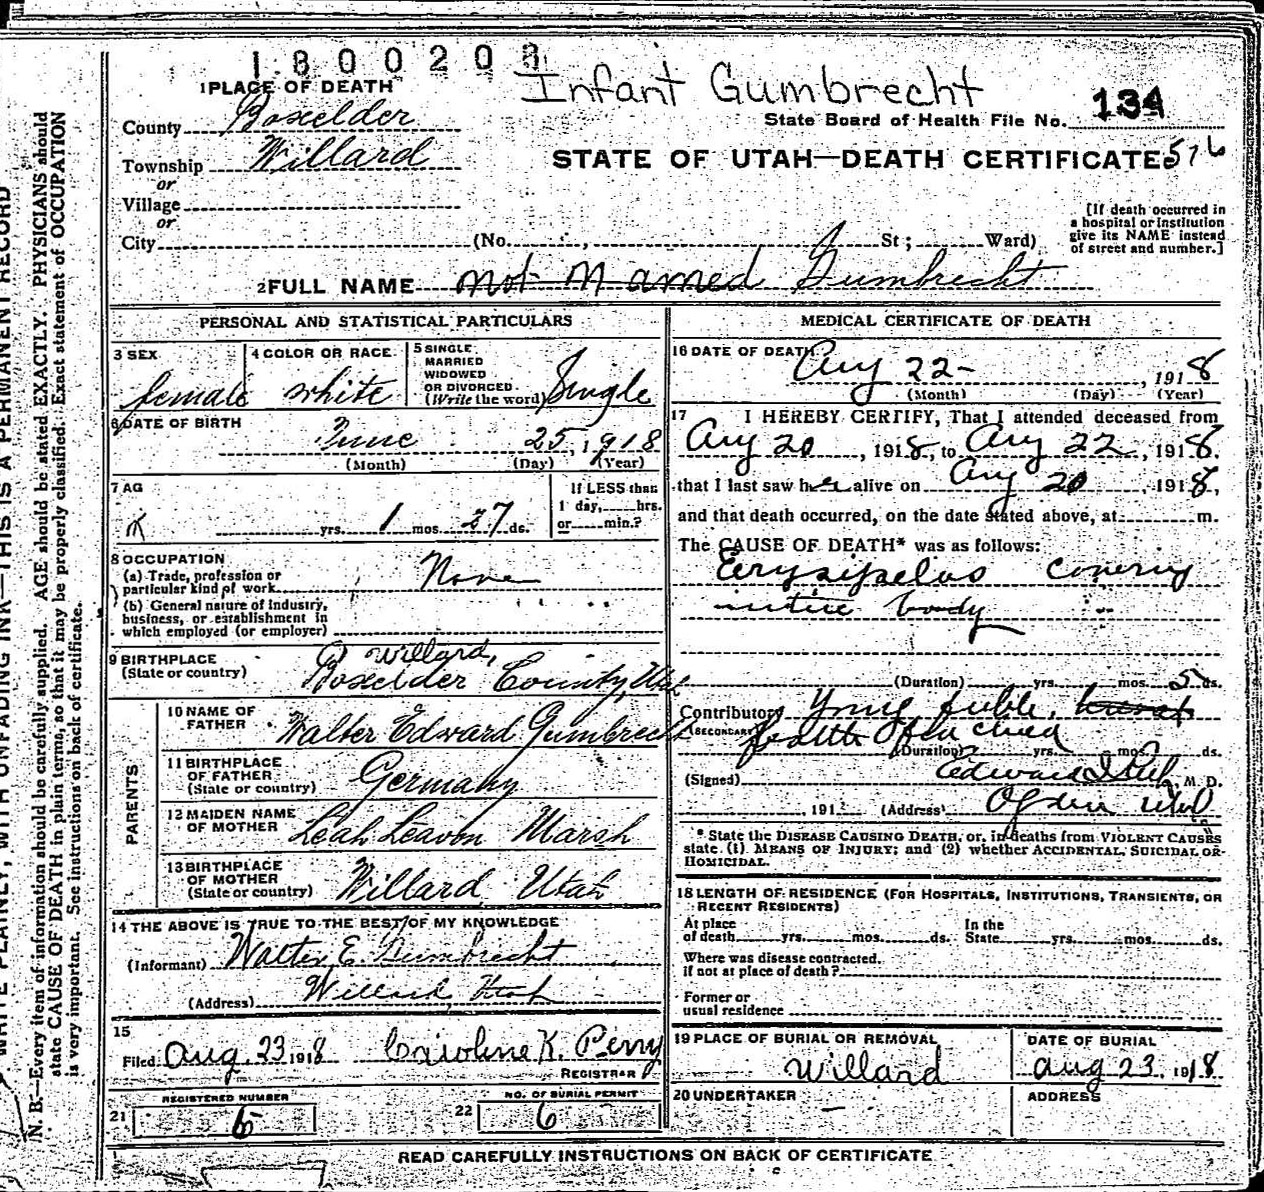 1800208
Infant Gumbrecht
1 PLACE OF DEATH
County Boxelder
State Board of Health File No. 134
Township Willard
STATE OF UTAH—DEATH CERTIFICATE 576
or
Village
or
City (No. , St ; Ward)
[If death occurred in
a hospital or institution
give its NAME instead
of street and number.]
2 FULL NAME not Named Gumbrecht
PERSONAL AND STATISTICAL PARTICULARS
3 SEX
female
4 COLOR OR RACE
white
5 SINGLE
MARRIED
WIDOWED
OR DIVORCED
(Write the word) Single
6 DATE OF BIRTH
June 25, 1918
(Month) (Day) (Year)
7 AG
yrs. 1 mos. 27 ds.
If LESS than
1 day, hrs.
or min.?
8 OCCUPATION
(a) Trade, profession or
particular kind of work None
(b) General nature of Industry,
business, or establishment in
which employed (or employer)
9 BIRTHPLACE
(State or country)
Willard,
Boxelder County, Utah
PARENTS
10 NAME OF
FATHER Walter Edward Gumbrecht
11 BIRTHPLACE
OF FATHER
(State or country) Germany
12 MAIDEN NAME
OF MOTHER Leah Leavon Marsh
13 BIRTHPLACE
OF MOTHER
(State or country) Willard Utah
14 THE ABOVE IS TRUE TO THE BEST OF MY KNOWLEDGE
(Informant) Walter E. Gumbrecht
(Address) Willard, Utah
15
Filed Aug. 23 1918 Caroline K. Perry
REGISTRAR
REGISTERED NUMBER
21 6
NO. OF BURIAL PERMIT
22 6
MEDICAL CERTIFICATE OF DEATH
16 DATE OF DEATH
Aug 22- , 1918
(Month) (Day) (Year)
17 I HEREBY CERTIFY, That I attended deceased from
Aug 20 , 1918, to Aug 22 , 1918.
that I last saw her alive on Aug 20 , 1918,
and that death occurred, on the date stated above, at m.
The CAUSE OF DEATH* was as follows:
Eirysipelas covering
intire body
(Duration) yrs. mos. 5 ds.
Contributory Young feble,
(SECONDARY) health of a child
(Duration) yrs. mos. ds.
(Signed) Edward I M. D.
, 191 (Address) Ogden Utah
* State the DISEASE CAUSING DEATH, or, in deaths from VIOLENT CAUSES
state (1) MEANS OF INJURY; and (2) whether ACCIDENTAL, SUICIDAL OR
HOMICIDAL.
18 LENGTH OF RESIDENCE (FOR HOSPITALS, INSTITUTIONS, TRANSIENTS, OR
RECENT RESIDENTS)
At place
of death yrs. mos. ds.
In the
State yrs. mos. ds.
Where was disease contracted.
if not at place of death?
Former or
usual residence
19 PLACE OF BURIAL OR REMOVAL
Willard
DATE OF BURIAL
Aug 23, 1918
20 UNDERTAKER
—
ADDRESS
READ CAREFULLY INSTRUCTIONS ON BACK OF CERTIFICATE
WRITE PLAINLY, WITH UNFADING INK—THIS IS A PERMANENT RECORD
N. B.—Every item of information should be carefully supplied. AGE should be stated EXACTLY. PHYSICIANS should
state CAUSE OF DEATH in plain terms, so that it may be properly classified. Exact statement of OCCUPATION
is very important. See instructions on back of certificate.